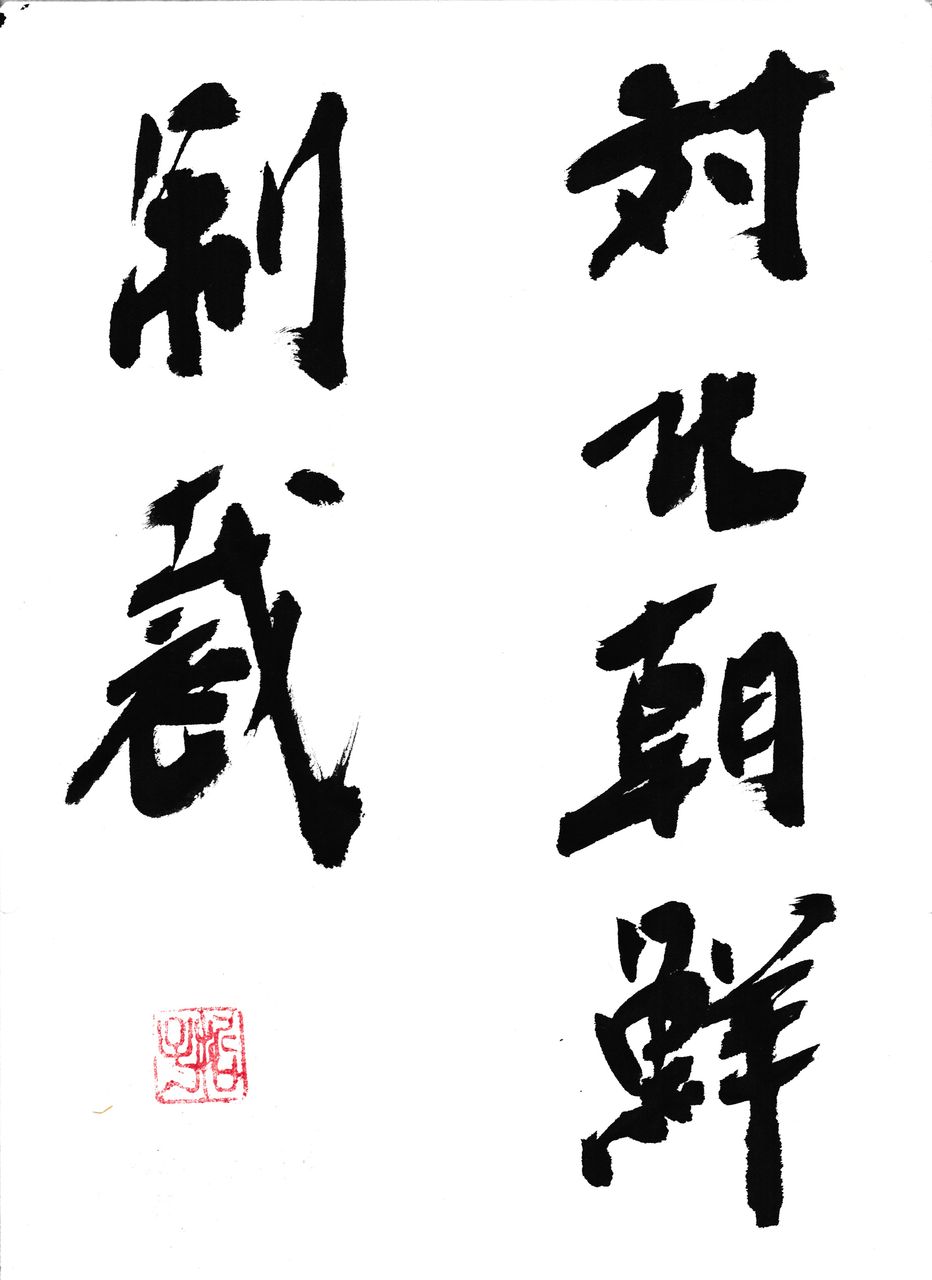 対北朝鮮
制裁